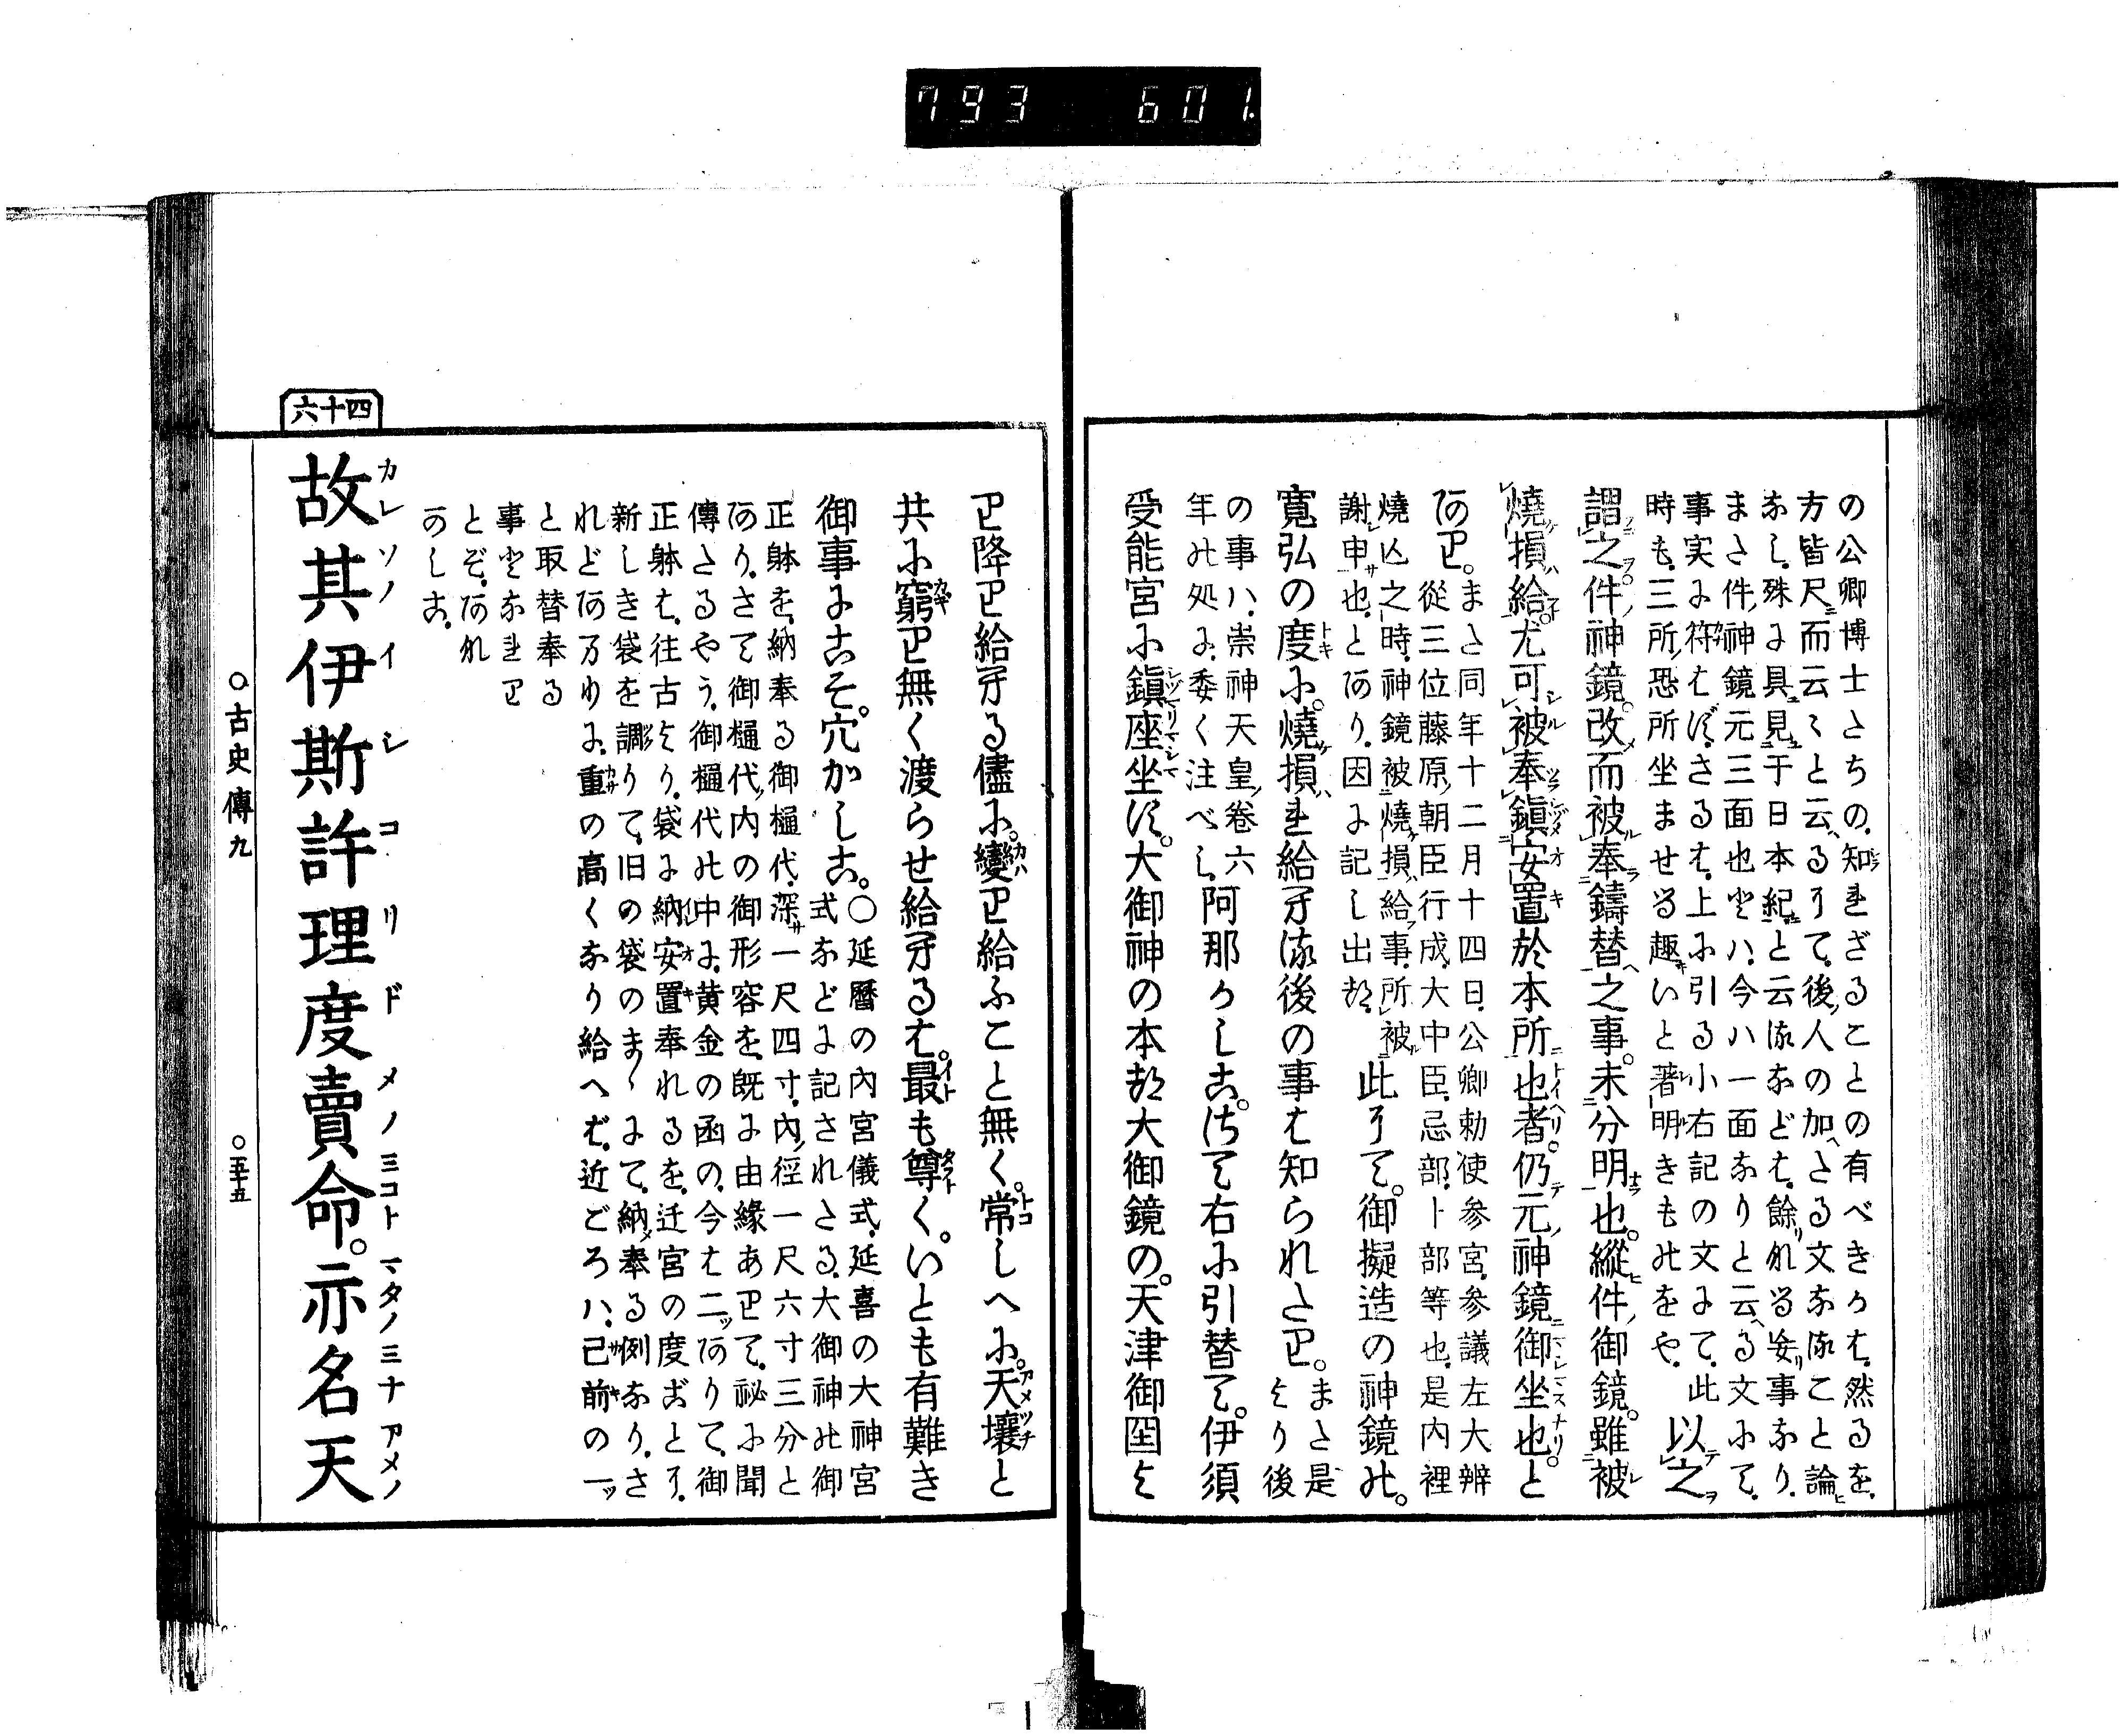 793 601.
の公卿博士たちの、知れざることの有べきかは、然るを、
方皆尺而云々と云へるりて、後人の加へたる文なることと論ひ
なし、殊に具見于日本紀と云るなどは、餘りなる妄事なり、
また件神鏡元三面也とハ、今ハ一面なりと云へる文にて、
事実に符はず、さるは、上に引る小右記の文にて、此
時も、三所恐所坐ませる趣いと著明きものをや、
以之
謂之件神鏡。改而被奉鑄替之事。未分明也。縱件御鏡。雖被
燒損給。尤可被奉鎭安置於本所也者。仍元神鏡御坐也。と
あり。
また同年十二月十四日、公卿勅使参宮、参議左大辨
從三位藤原朝臣行成、大中臣、忌部、卜部等也、是内裡
燒亡之時、神鏡被燒損給事、所被
謝申也、とあり、因に記し出づ、
此りて。御擬造の神鏡の。
寛弘の度に。燒損れ給へる後の事は知られたり。
また是
より後
の事ハ、崇神天皇卷六
年の処に、委く注べし、
阿那かしこ。さて右に引替て。伊須
受能宮に鎭座坐す。大御神の本の大御鏡の。天津御国よ
り降り給へる儘に。變り給ふこと無く。常しへに。天壤と
共に窮り無く渡らせ給へるは。最も尊く。いとも有難き
御事にこそ。穴かしこ。
〇延曆の内宮儀式、延喜の大神宮
式などに記されたる、大御神の御
正躰を、納奉る御樋代、深一尺四寸、内徑一尺六寸三分と
あり、さて御樋代内の御形容を、既に由緣ありて、祕に聞
傳たるやう、御樋代の中に、黄金の函の、今は二ッありて、御
正躰は、往古より、袋に納安置奉れるを、迁宮の度ごとに、
新しき袋を調りて、旧の袋のまゝにて、納奉る例なり、さ
れどあまりに、重の高くなり給へば、近ごろハ、已前の一ッ
と取替奉る
事となれり
とぞ、あな
かしこ、
六十四
故其伊斯許理度賣命。亦名天
カレソノイシコリドメノミコトマタノミナアメノ
〇古史傳九
〇五十五